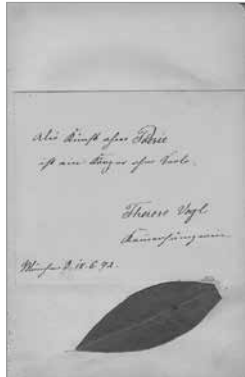 Kunst ohne Poesie
ist ein Körper ohne Seele.
Therese Vogl
Kamersängerin
München 6. 92.